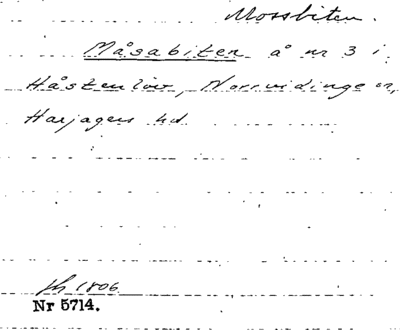 Mossbiten.
Måsabiten å nr 3 i
Håstenlöv, Norrvidinge sn,
Harjagers hd
1806
Nr 5714.